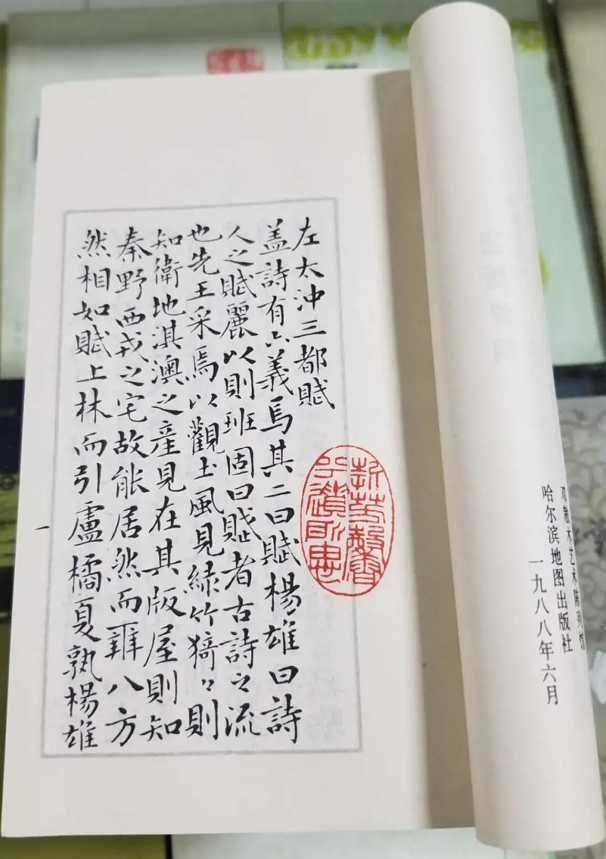 邓散木艺术陈列馆
哈尔滨地图出版社
一九八八年六月
左太冲三都賦
盖詩有六義焉其二曰賦楊雄曰詩
人之賦麗以則班固曰賦者古詩之流
也先王采焉以觀土風見綠竹猗々則
知衛地淇澳之產見在其版屋則知
秦野西戎之宅故能居然而辨八方
然相如賦上林而引盧橘夏孰楊雄
一